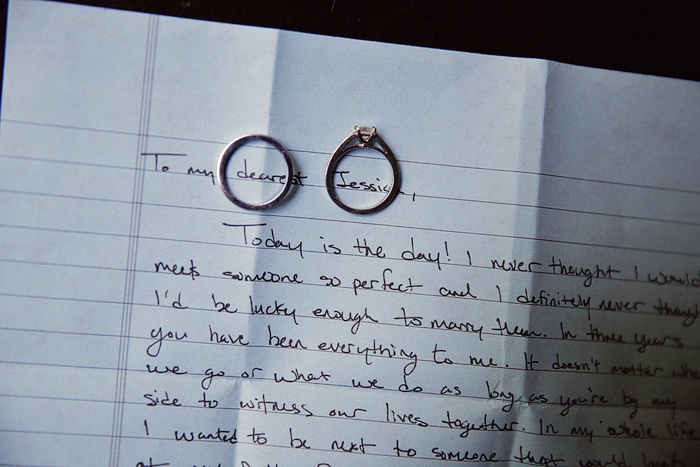 To my dearest Jessica,
Today is the day! I never thought I would
meet someone so perfect and I definitely never thought
I'd be lucky enough to marry them. In three years
you have been everything to me. It doesn't matter where
we go or what we do as long as you're by my
side to witness our lives together. In my whole life
I wanted to be next to someone that would
at